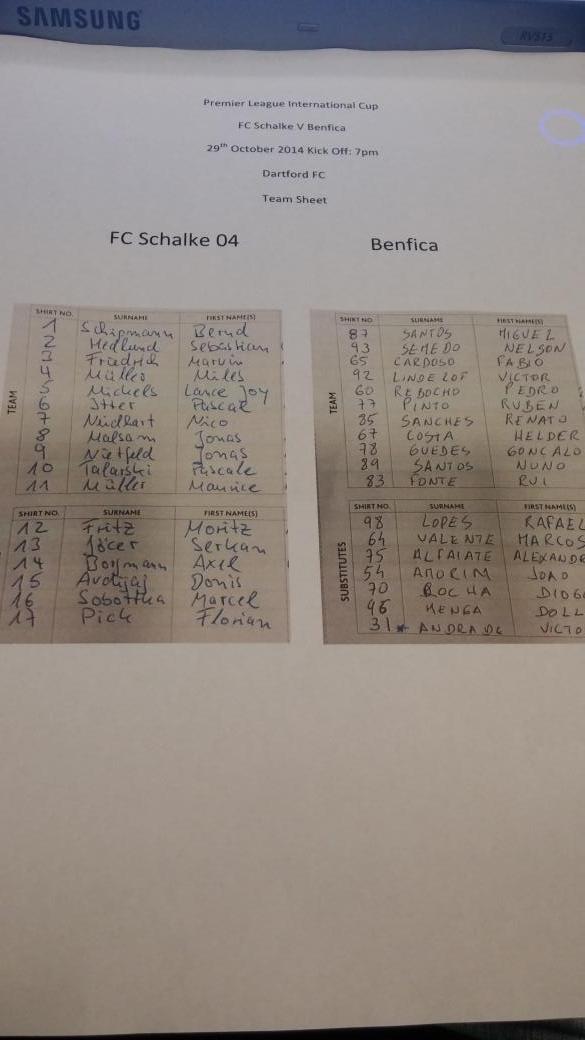 SAMSUNG
RV515
Premier League International Cup
FC Schalke V Benfica
29th October 2014 Kick Off: 7pm
Dartford FC
Team Sheet
FC Schalke 04
Benfica
SHIRT NO. SURNAME FIRST NAME(S)
TEAM
1 Schipmann Bernd
2 Hedlund Sebastian
3 Friedrich Marvin
4 Müller Miles
5 Michels Lance Joy
6 Itter Pascal
7 Neidhart Nico
8 Malsam Jonas
9 Nietfeld Jonas
10 Talarski Pascale
11 Müller Maurice
SHIRT NO. SURNAME FIRST NAME(S)
12 Fritz Moritz
13 Göcer Serkan
14 Borgmann Axel
15 Avdijaj Donis
16 Sobottka Marcel
17 Pick Florian
SHIRT NO. SURNAME FIRST NAME(S)
TEAM
87 SANTOS MIGUEL
93 SEMEDO NELSON
65 CARDOSO FABIO
92 LINDELOF VICTOR
60 REBOCHO PEDRO
77 PINTO RUBEN
85 SANCHES RENATO
67 COSTA HELDER
78 GUEDES GONCALO
89 SANTOS NUNO
83 FONTE RUI
SHIRT NO. SURNAME FIRST NAME(S)
SUBSTITUTES
98 LOPES RAFAEL
64 VALENTE MARCOS
75 ALFAIATE ALEXANDE
54 AMORIM JOAO
70 ROCHA DIOG
96 MENGA DOLL
31* ANDRADE VICTO